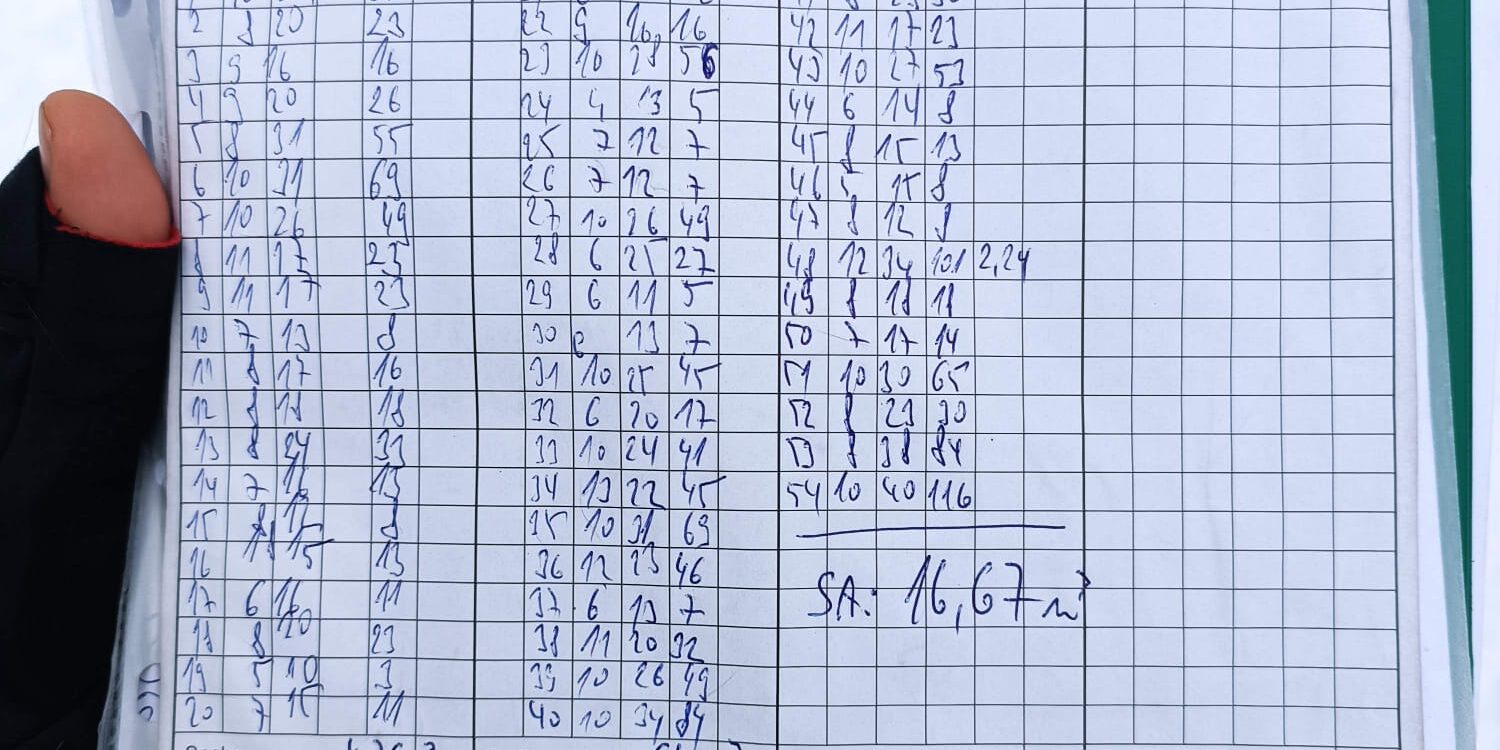 2 8 20 23 22 9 16 16 42 11 17 23
3 9 16 16 23 10 28 56 43 10 27 53
4 9 20 26 24 4 13 5 44 6 14 8
5 8 31 55 25 7 12 7 45 8 15 13
6 10 31 69 26 7 12 7 46 5 15 8
7 10 26 49 27 10 26 49 47 8 12 8
8 11 17 23 28 6 25 27 48 12 34 101 2,24
9 11 17 23 29 6 11 5 49 8 18 18
10 7 13 8 30 13 7 50 7 17 14
11 8 17 16 31 10 25 45 51 10 30 65
12 8 18 18 32 6 20 17 52 8 23 30
13 8 24 33 33 10 24 41 53 8 38 84
14 7 16 13 34 13 22 45 54 10 40 116
15 8 12 8 35 10 31 69
16 15 13 36 12 23 46
17 6 16 11 37 6 13 7
18 8 20 23 38 11 20 32
19 5 10 3 39 10 26 49
20 7 15 11 40 10 34 84
SA: 16,67 m³